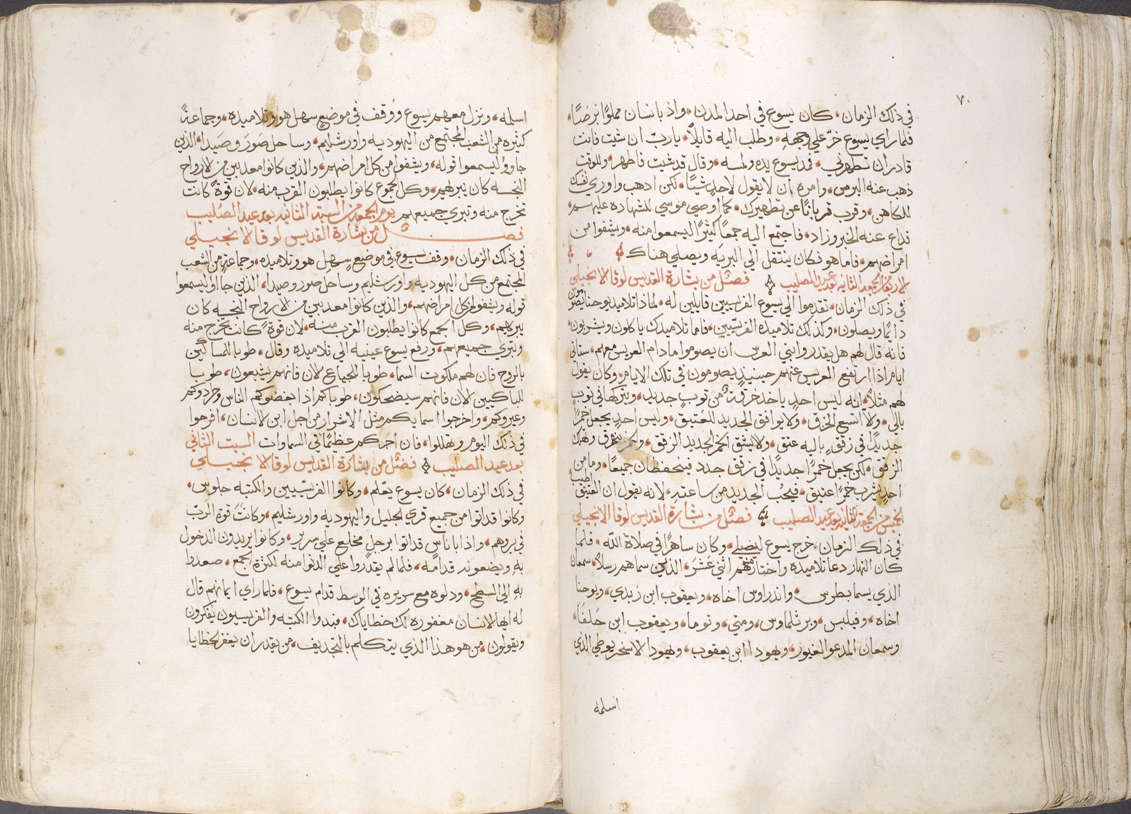 ٧٠
في ذلك الزمان كان يسوع في احد المدن واذ بانسان مملوًا برصًا
فلما راي يسوع خرّ علي وجهه وطلب اليه قايلاً يارب ان شيت فانت
قادر ان تطهرني فمد يسوع يده ولمسه وقال قد شيت فاطهر وللوقت
ذهب عنه البرص وامره ان لا يقول لاحدٍ شيًا لكن اذهب واوري نفسك
للكاهن وقرب قربانًا عن تطهيرك كما اوصي موسي للشهاده عليهم
فذاع عنه الخبر وزاد فاجتمع اليه جمعًا كثيرًا ليسمعوا منه ويشفوا من
امراضهم فاما هو فكان ينتقل الي البريّه ويصلي هناك
الاربعا من الجمعه الثانيه بعد عيد الصليب فصل من بشارة القديس لوقا الانجيلي
في ذلك الزمان تقدموا الي يسوع الفريسيين قايلين له لماذا تلاميذ يوحنا يصومون
دايمًا ويصلون وكذلك تلاميذ الفريسيين فاما تلاميذك ياكلون ويشربون
فانه قال لهم هل يقدروا بني العرس ان يصوموا مادام العريس معهم ستاتي
ايام اذا ارتفع العريس عنهم حينيذٍ يصومون في تلك الايام وكان يقول
لهم مثلاً انه ليس احدٍ ياخذ خرقة من ثوبٍ جديد ويتركها في ثوب
بالي ولا تتسع الخرق ولا يوافق الجديد للعتيق وليس احدٍ يجعل خمرًا
جديدًا في زقٍ باليه عتق ولا ينشق الخمر الجديد الزقق وتهلك
الزقق لكن يجعل خمرًا جديدًا في زقق جدد فينحفظان جميعًا وما من
احدٍ يشرب خمرًا عتيق فيحب الجديد من ساعته لانه يقول ان العتيق طيب
الخميس من الجمعه الثانيه بعد عيد الصليب فصل من بشارة القديس لوقا الانجيلي
في ذلك الزمان خرج يسوع ليصلي وكان ساهرًا في صلاة الله فلما
كان النهار دعا تلاميذه واختار منهم اثني عشر الذين سماهم رسلاً سمعان
الذي يسما بطرس واندراوس اخاه ويعقوب ابن زبدي ويوحنا
اخاه وفيلبس وبرثلماوس ومتي وتوما ويعقوب ابن حلفا
وسمعان المدعو الغيور ويهودا ابن يعقوب ويهودا الاسخريوطي الذي
اسلمه
اسلمه ونزل معهم يسوع ووقف في موضع سهل هو وتلاميذه وجماعةً
كثيره من الشعب المجتمع من اليهوديه واورشليم وساحل صور وصيدا الذين
جاوا ليسمعوا قوله ويشفوا من كل امراضهم والذين كانوا معذبين من الارواح
النجسه كان يبريهم وكل الجموع كانوا يطلبون القرب منه لان قوة كانت
تخرج منه وتبري جميعهم يوم الجمعه من السبه الثانيه بعد عيد الصليب
فصل من بشارة القديس لوقا الانجيلي
في ذلك الزمان وقف يسوع في موضع سهل هو وتلاميذه وجماعةٍ من الشعب
المجتمع من كل اليهوديه واورشليم وساحل صور وصيدا الذين جاوا ليسمعوا
قوله ويشفوا من كل امراضهم والذين كانوا معذبين من الارواح النجسه كان
يبريهم وكل الجمع كانوا يطلبون القرب منه لان قوة كانت تخرج منه
وتبري جميعهم ورفع يسوع عينيه الي تلاميذه وقال طوبا للمساكين
بالروح فان لهم ملكوت السما طوبا للجياع الان فانهم يشبعون طوبا
للباكيين الان فانهم سيضحكون طوباكم اذا ابغضوكم الناس وطردوكم
وعيروكم واخرجوا اسماكم مثل الاشرار من اجل ابن الانسان افرحوا
في ذلك اليوم وتهللوا فان اجركم عظيمًا في السماوات السبت الثاني
بعد عيد الصليب فصل من بشارة القديس لوقا الانجيلي
في ذلك الزمان كان يسوع يعلم وكانوا الفريسيين والكتبه جلوس
وكانوا قد اتوا من جميع قري الجليل واليهوديه واورشليم وكانت قوة الرب
تبريهم واذا باناس قد اتوا برجلٍ مخلع علي سرير وكانوا يريدون الدخول
به ويضعونه قدامه فلما لم يقدروا علي الدنو منه لكثرة الجمع صعدوا
به الي السطح ودلوه مع سريره في الوسط قدام يسوع فلما راي ايمانهم قال
له ايها الانسان مغفوره لك خطاياك فبدوا الكتبه والفريسيون يفكرون
ويقولون من هو هذا الذي يتكلم بالتجديف من يقدر ان يغفر الخطايا